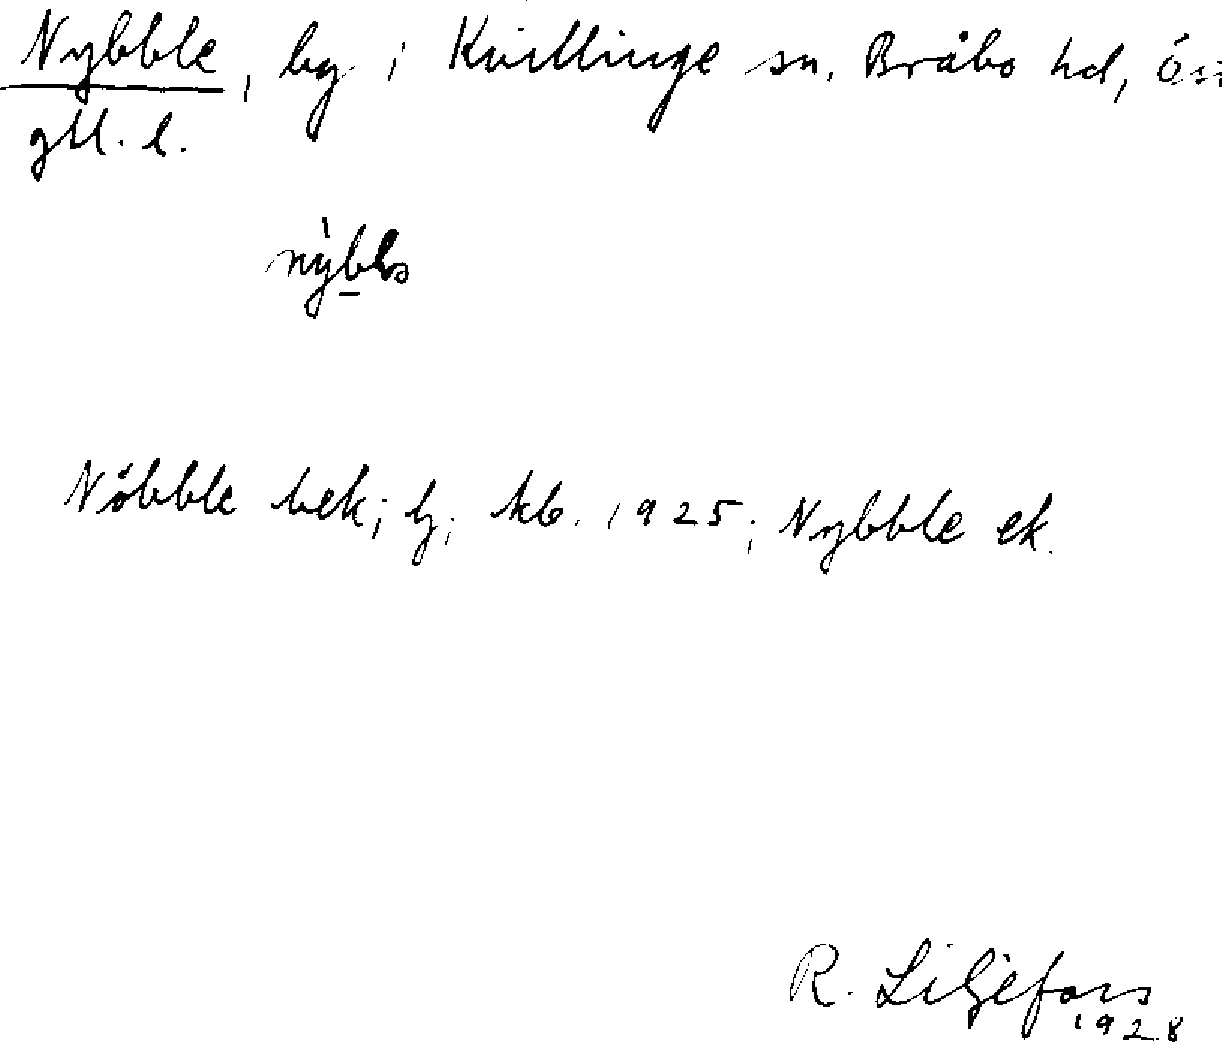 Nybble, by i Kvillinge sn, Bråbo hd, Öst
gtl. l.
nỳbblə
Nöbble bek; lj; kb. 1925; Nybble ek.
R. Liljefors
1928